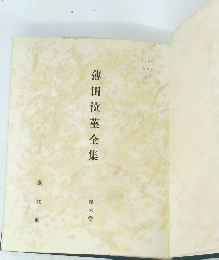 薄田泣菫全集
第六巻
創元社